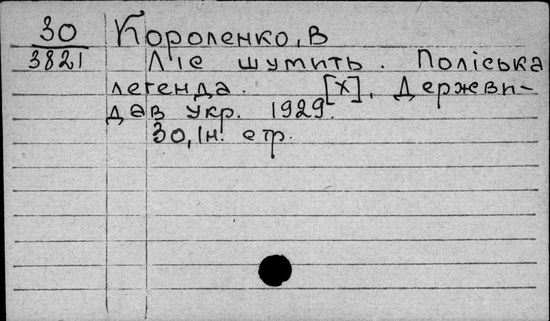 30 Короленко, В
3821 Ліс шумить. Поліська
легенда. [Х], Держви-
дав Укр. 1929.
30, 1н. стр.